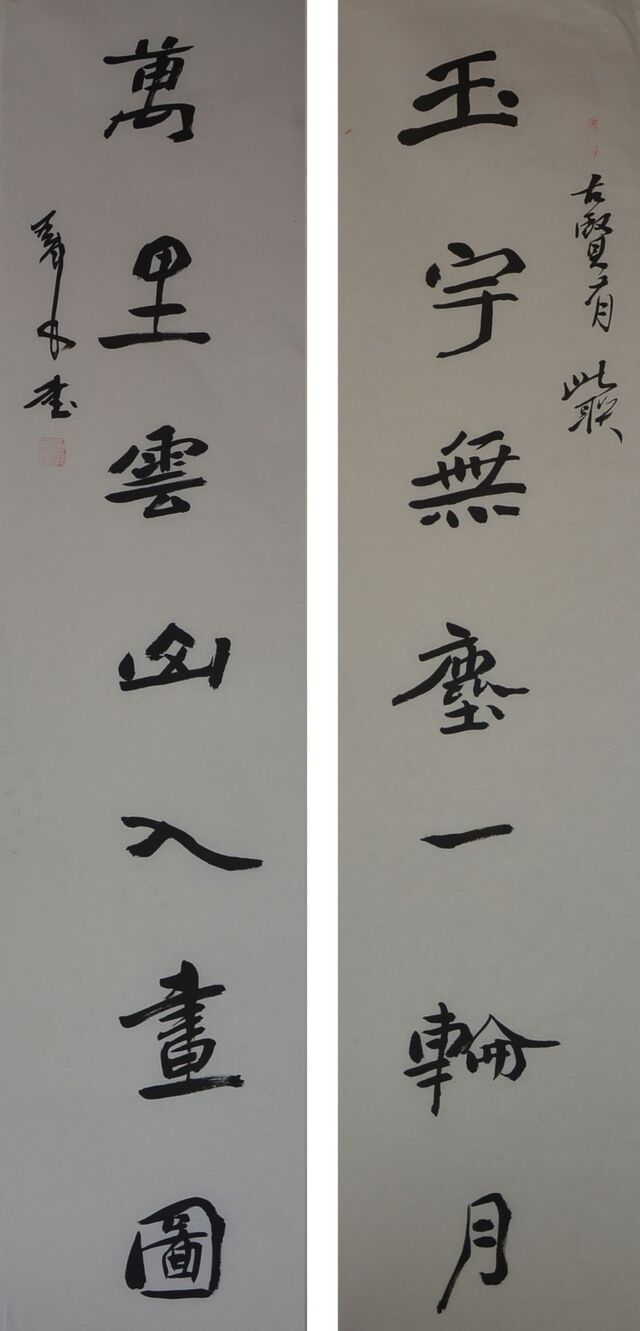 古賢有此联
玉宇無塵一輪月
萬里雲山入畫圖